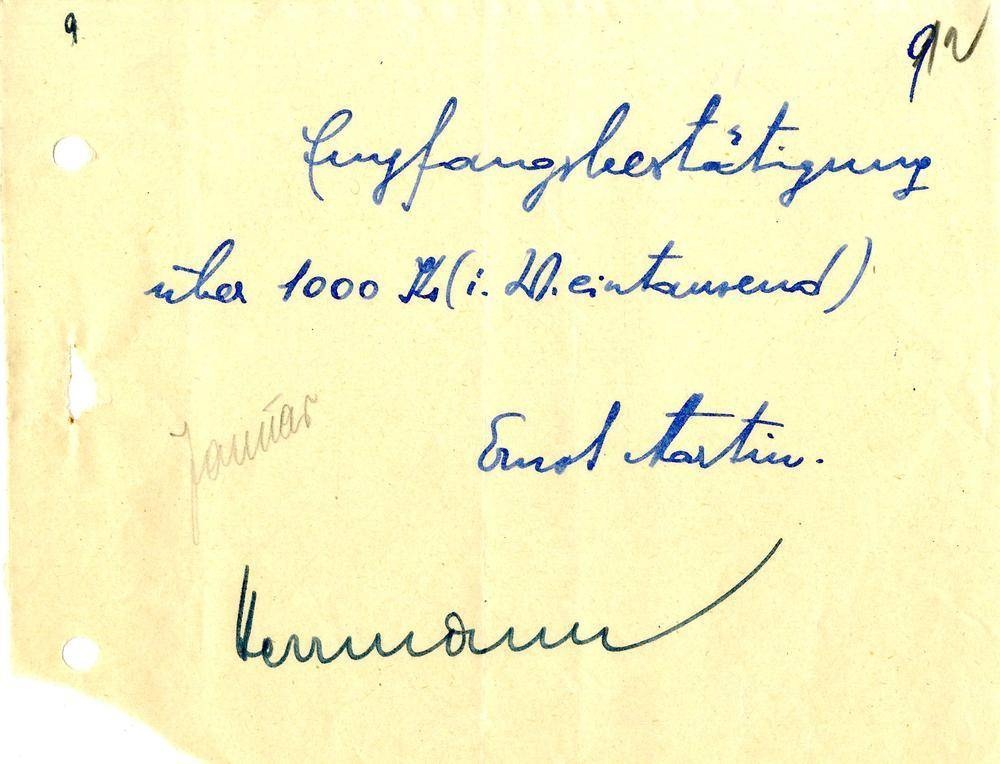 9
9
Empfangsbestätigung
über 1000 Ks (i. W. eintausend)
Januar
Ernst Martin.
Herrmann